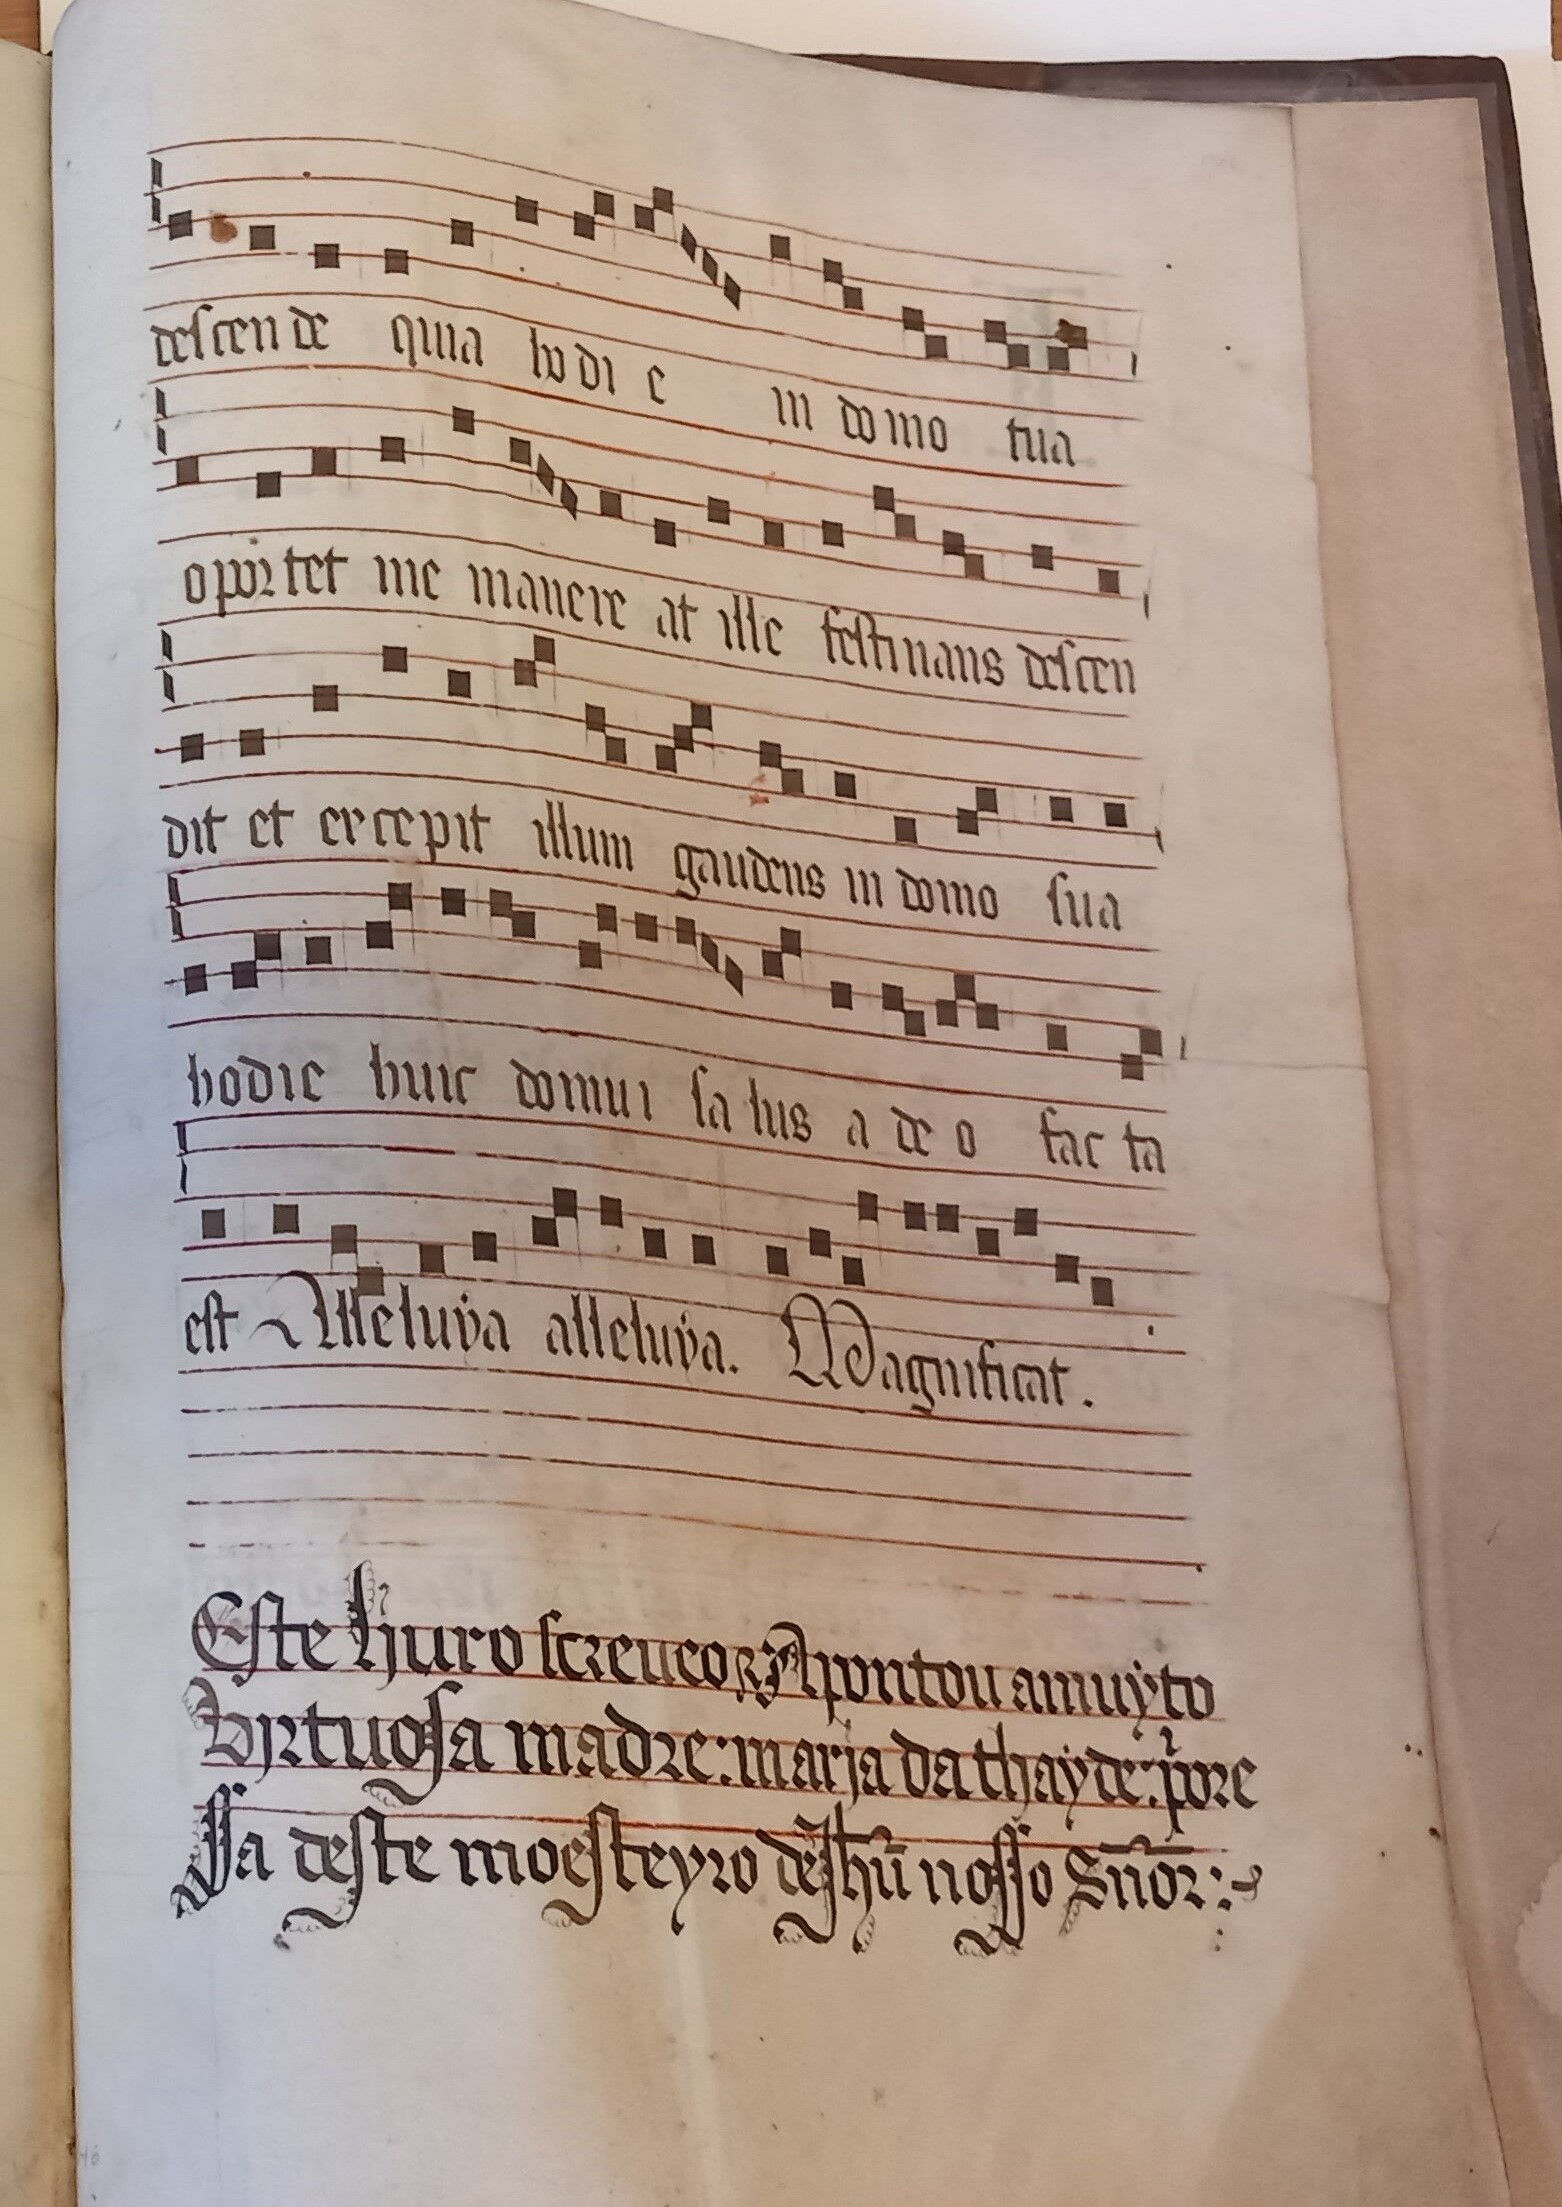 descende quia hodie in domo tua
oportet me manere at ille festinans descen
dit et excepit illum gaudens in domo sua
hodie huic domui salus a deo facta
est Alleluya alleluya. Magnificat.
Este liuro screueo & Apontou a muyto
Virtuosa madre: maria dathayde: pore
ssa deste moesteyro de Jhũ nosso Sñor: